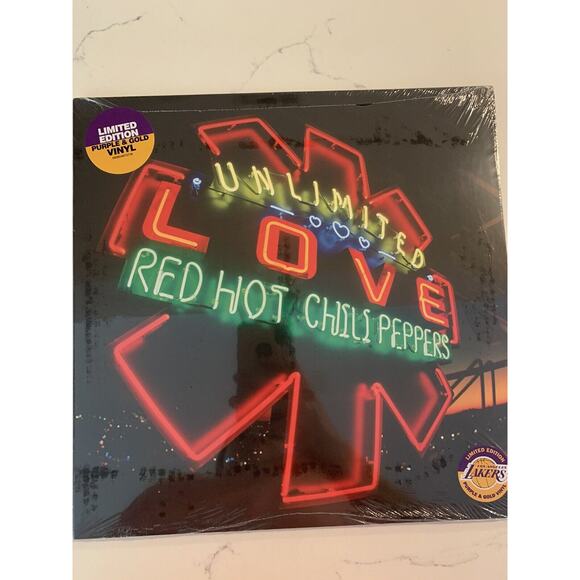 LIMITED
EDITION
PURPLE & GOLD
VINYL
UNLIMITED
LOVE
RED HOT CHILI PEPPERS
LIMITED EDITION
LOS ANGELES
LAKERS
PURPLE & GOLD VINYL